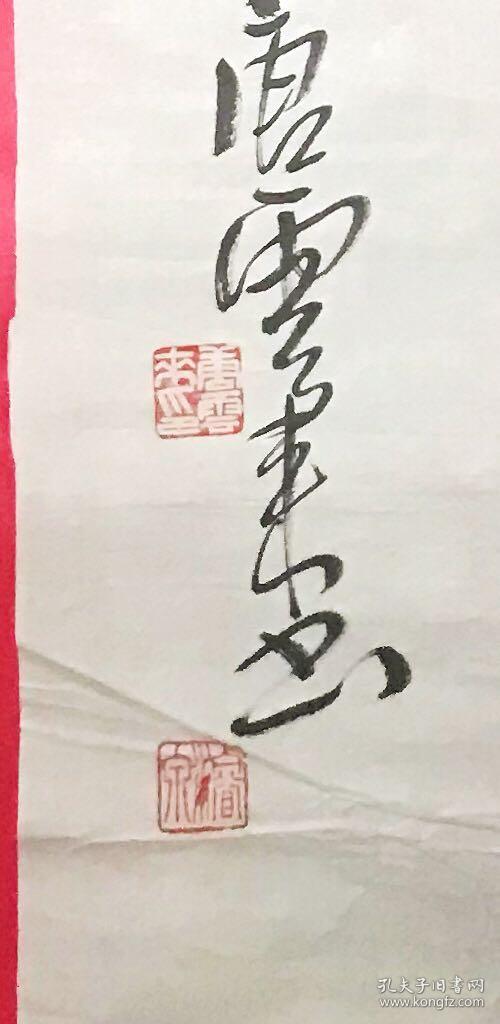 唐雲来书
唐雲
來印
孔夫子旧书网
www.kongfz.com